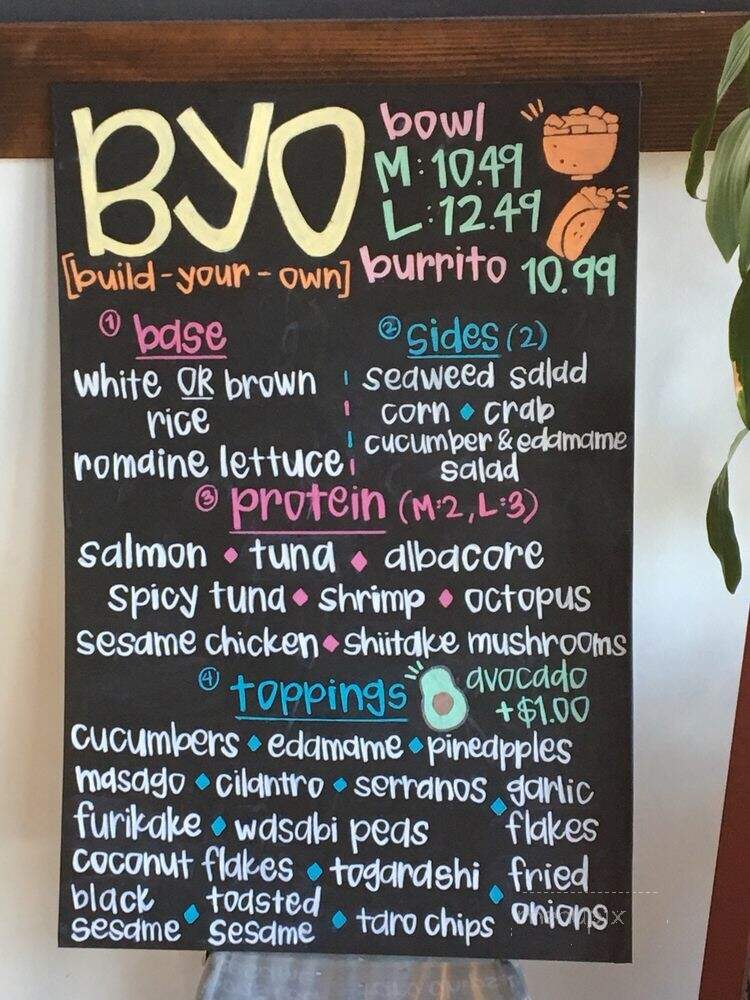 BYO
[build-your-own]
bowl
M: 10.49
L: 12.49
burrito 10.99
① base
white OR brown
rice
romaine lettuce
② sides (2)
seaweed salad
corn ◆ crab
cucumber & edamame
salad
③ protein (M:2, L:3)
salmon ◆ tuna ◆ albacore
spicy tuna ◆ shrimp ◆ octopus
sesame chicken ◆ shiitake mushrooms
④ toppings
avocado
+$1.00
cucumbers ◆ edamame ◆ pineapples
masago ◆ cilantro ◆ serranos ◆ garlic
flakes
furikake ◆ wasabi peas
coconut flakes ◆ togarashi ◆ fried
onions
black
sesame ◆ toasted
sesame ◆ taro chips